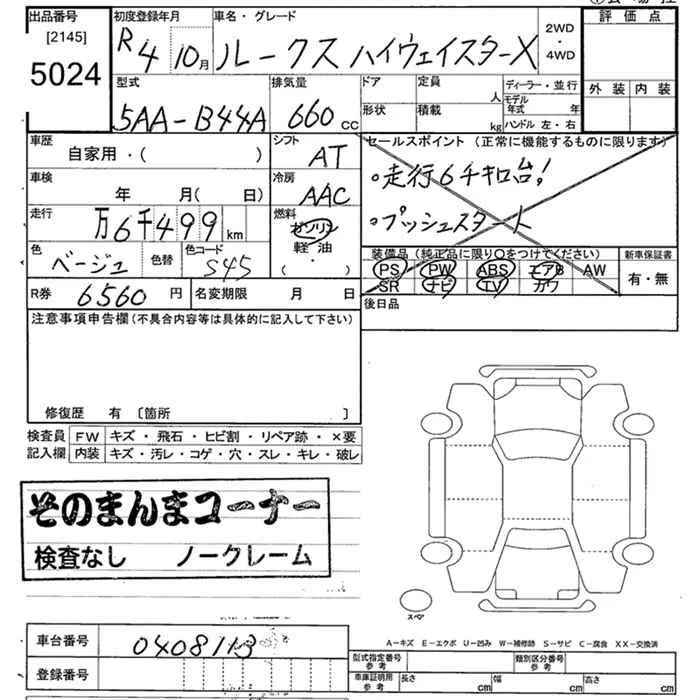 出品番号 初度登録年月 車名・グレード 評価点
[2145]
5024
R4 10月 ルークス ハイウェイスターX 2WD・4WD
外装 内装
型式 排気量 ドア 定員 人 ディーラー・並行
5AA-B44A 660cc 形状 積載 kg モデル年式 年
ハンドル 左・右
車歴 シフト セールスポイント(正常に機能するものに限ります)
自家用・( ) AT
。走行6千キロ台!
車検 冷房
年 月( 日) AAC
。プッシュスタート
走行 燃料
万6千499km ガソリン
軽油
・( )
色 色替 色コード
ベージュ S45
装備品(純正品に限り○をつけてください) 新車保証書
PS PW ABS エアB AW 有・無
SR ナビ TV カワ
R券 6560円 名変期限 月 日 後日品
注意事項申告欄(不具合内容等は具体的に記入して下さい)
修復歴 有 〔箇所 〕
検査員 FW キズ・飛石・ヒビ割・リペア跡・×要
記入欄 内装 キズ・汚レ・コゲ・穴・スレ・キレ・破レ
そのまんまコーナー
検査なし ノークレーム
スペア
A-キズ E-エクボ U-凹み W-補修跡 S-サビ C-腐食 XX-交換済
車台番号 0408113
登録番号
型式指定番号 参考 類別区分番号 参考
車庫証明用 参考 長さ cm 幅 cm 高さ cm